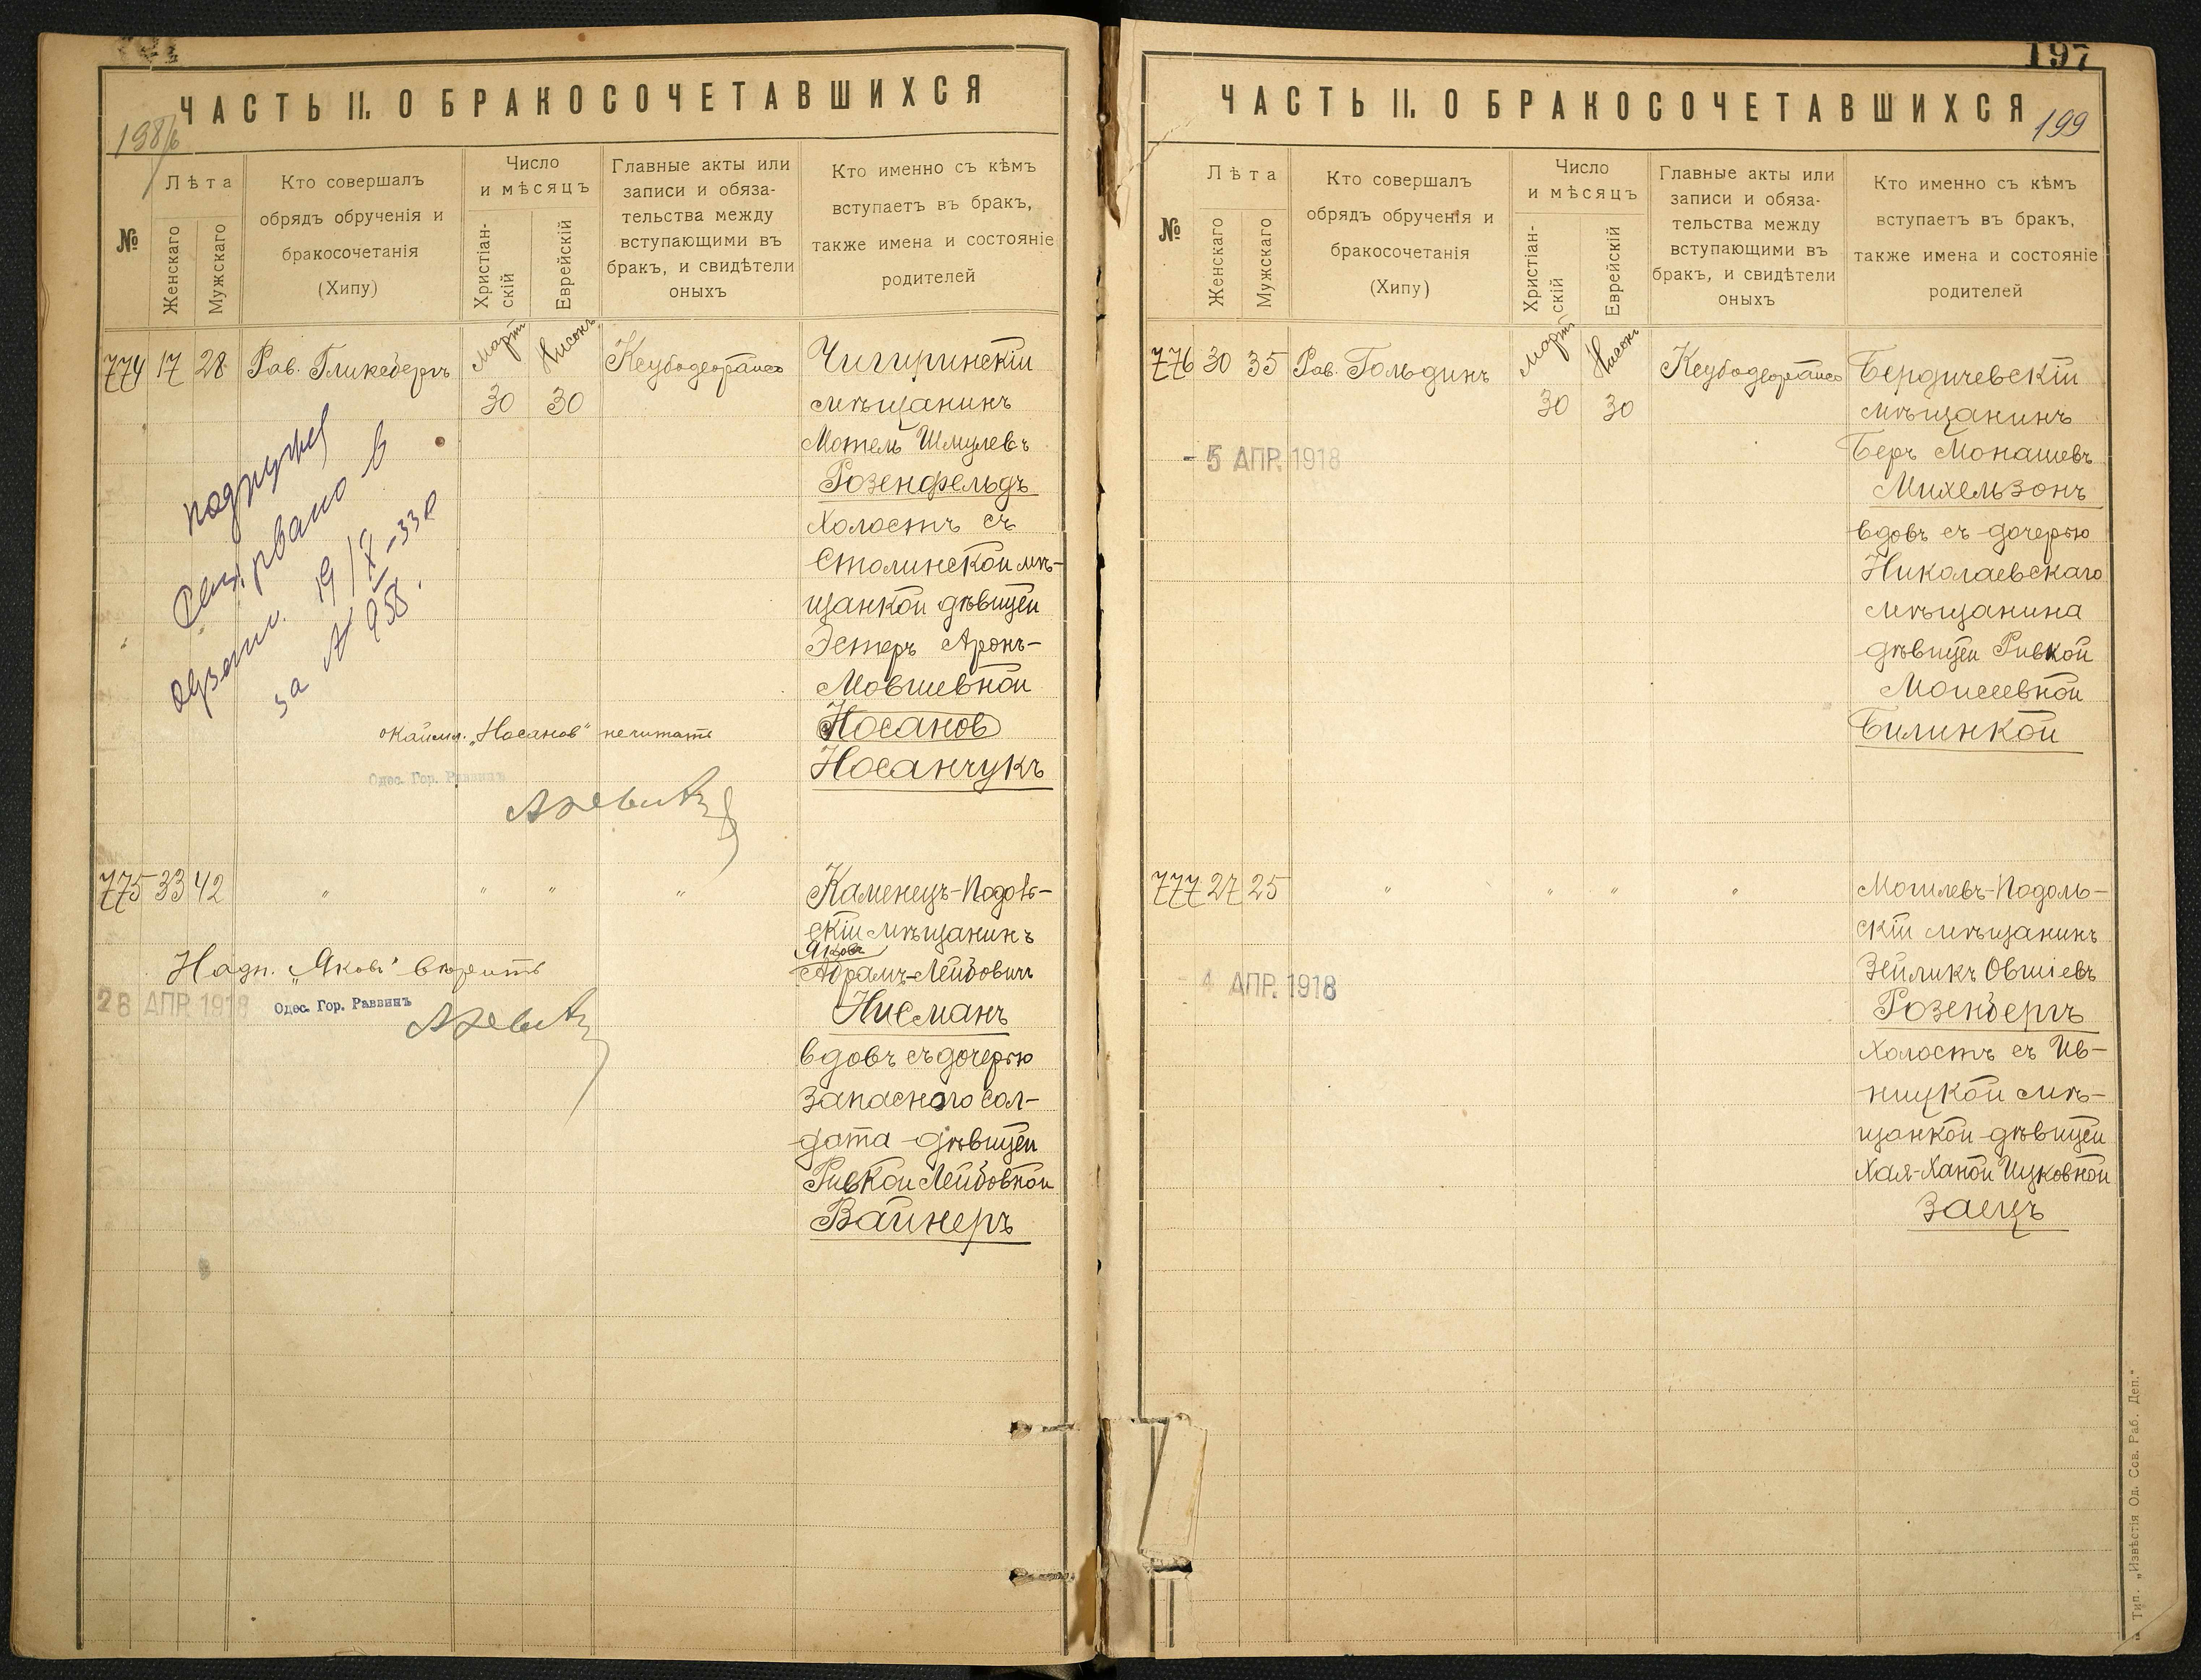 ЧАСТЬ II. О БРАКОСОЧЕТАВШИХСЯ
№
Лѣта
Женскаго
Мужскаго
Кто совершалъ
обрядъ обрученія и
бракосочетанія
(Хипу)
Число
и мѣсяцъ
Христіан-
скій
Еврейскій
Главные акты или
записи и обяза-
тельства между
вступающими въ
бракъ, и свидѣтели
оныхъ
Кто именно съ кѣмъ
вступаетъ въ бракъ,
также имена и состояніе
родителей
774 17 28 Рав. Гликсбергъ Мартъ 30 Нисонъ 30
Чигиринскій
мѣщанинъ
Мотель Шмулевъ
Розенфельдъ
холостъ съ
Столинской мѣ-
щанкой дѣвицей
Эстеръ Аронъ-
Мовшевной
Носанов
Носанчукъ
19/X-33
за № 958.
окаймл. „Носанов" не читать
Одес. Гор. Раввинъ
775 33 42 " " " "
Каменецъ-Подоль-
скій мѣщанинъ
Яковъ
Абрамъ-Лейбовичъ
Нисманъ
вдовъ съ дочерью
запасного сол-
дата дѣвицей
Ривкой Лейбовной
Вайнеръ
Надп. „Яковъ" вѣрить
28 АПР. 1918
Одес. Гор. Раввинъ
197
199
ЧАСТЬ II. О БРАКОСОЧЕТАВШИХСЯ
№
Лѣта
Женскаго
Мужскаго
Кто совершалъ
обрядъ обрученія и
бракосочетанія
(Хипу)
Число
и мѣсяцъ
Христіан-
скій
Еврейскій
Главные акты или
записи и обяза-
тельства между
вступающими въ
бракъ, и свидѣтели
оныхъ
Кто именно съ кѣмъ
вступаетъ въ бракъ,
также имена и состояніе
родителей
776 30 35 Рав. Гольдинъ Мартъ 30 Нисонъ 30
Бердичевскій
мѣщанинъ
Беръ Монашевъ
Михельзонъ
вдовъ съ дочерью
Николаевскаго
мѣщанина
дѣвицей Ривкой
Моисеевной
Билинкой
- 5 АПР. 1918
777 27 25 " " " "
Могилевъ-Подоль-
скій мѣщанинъ
Зейликъ Овшіевъ
Розенбергъ
холостъ съ Ив-
ницкой мѣ-
щанкой дѣвицей
Хая-Ханой Ицковной
Заецъ
- 4 АПР. 1918
Тип. „Извѣстія Од. Сов. Раб. Деп."